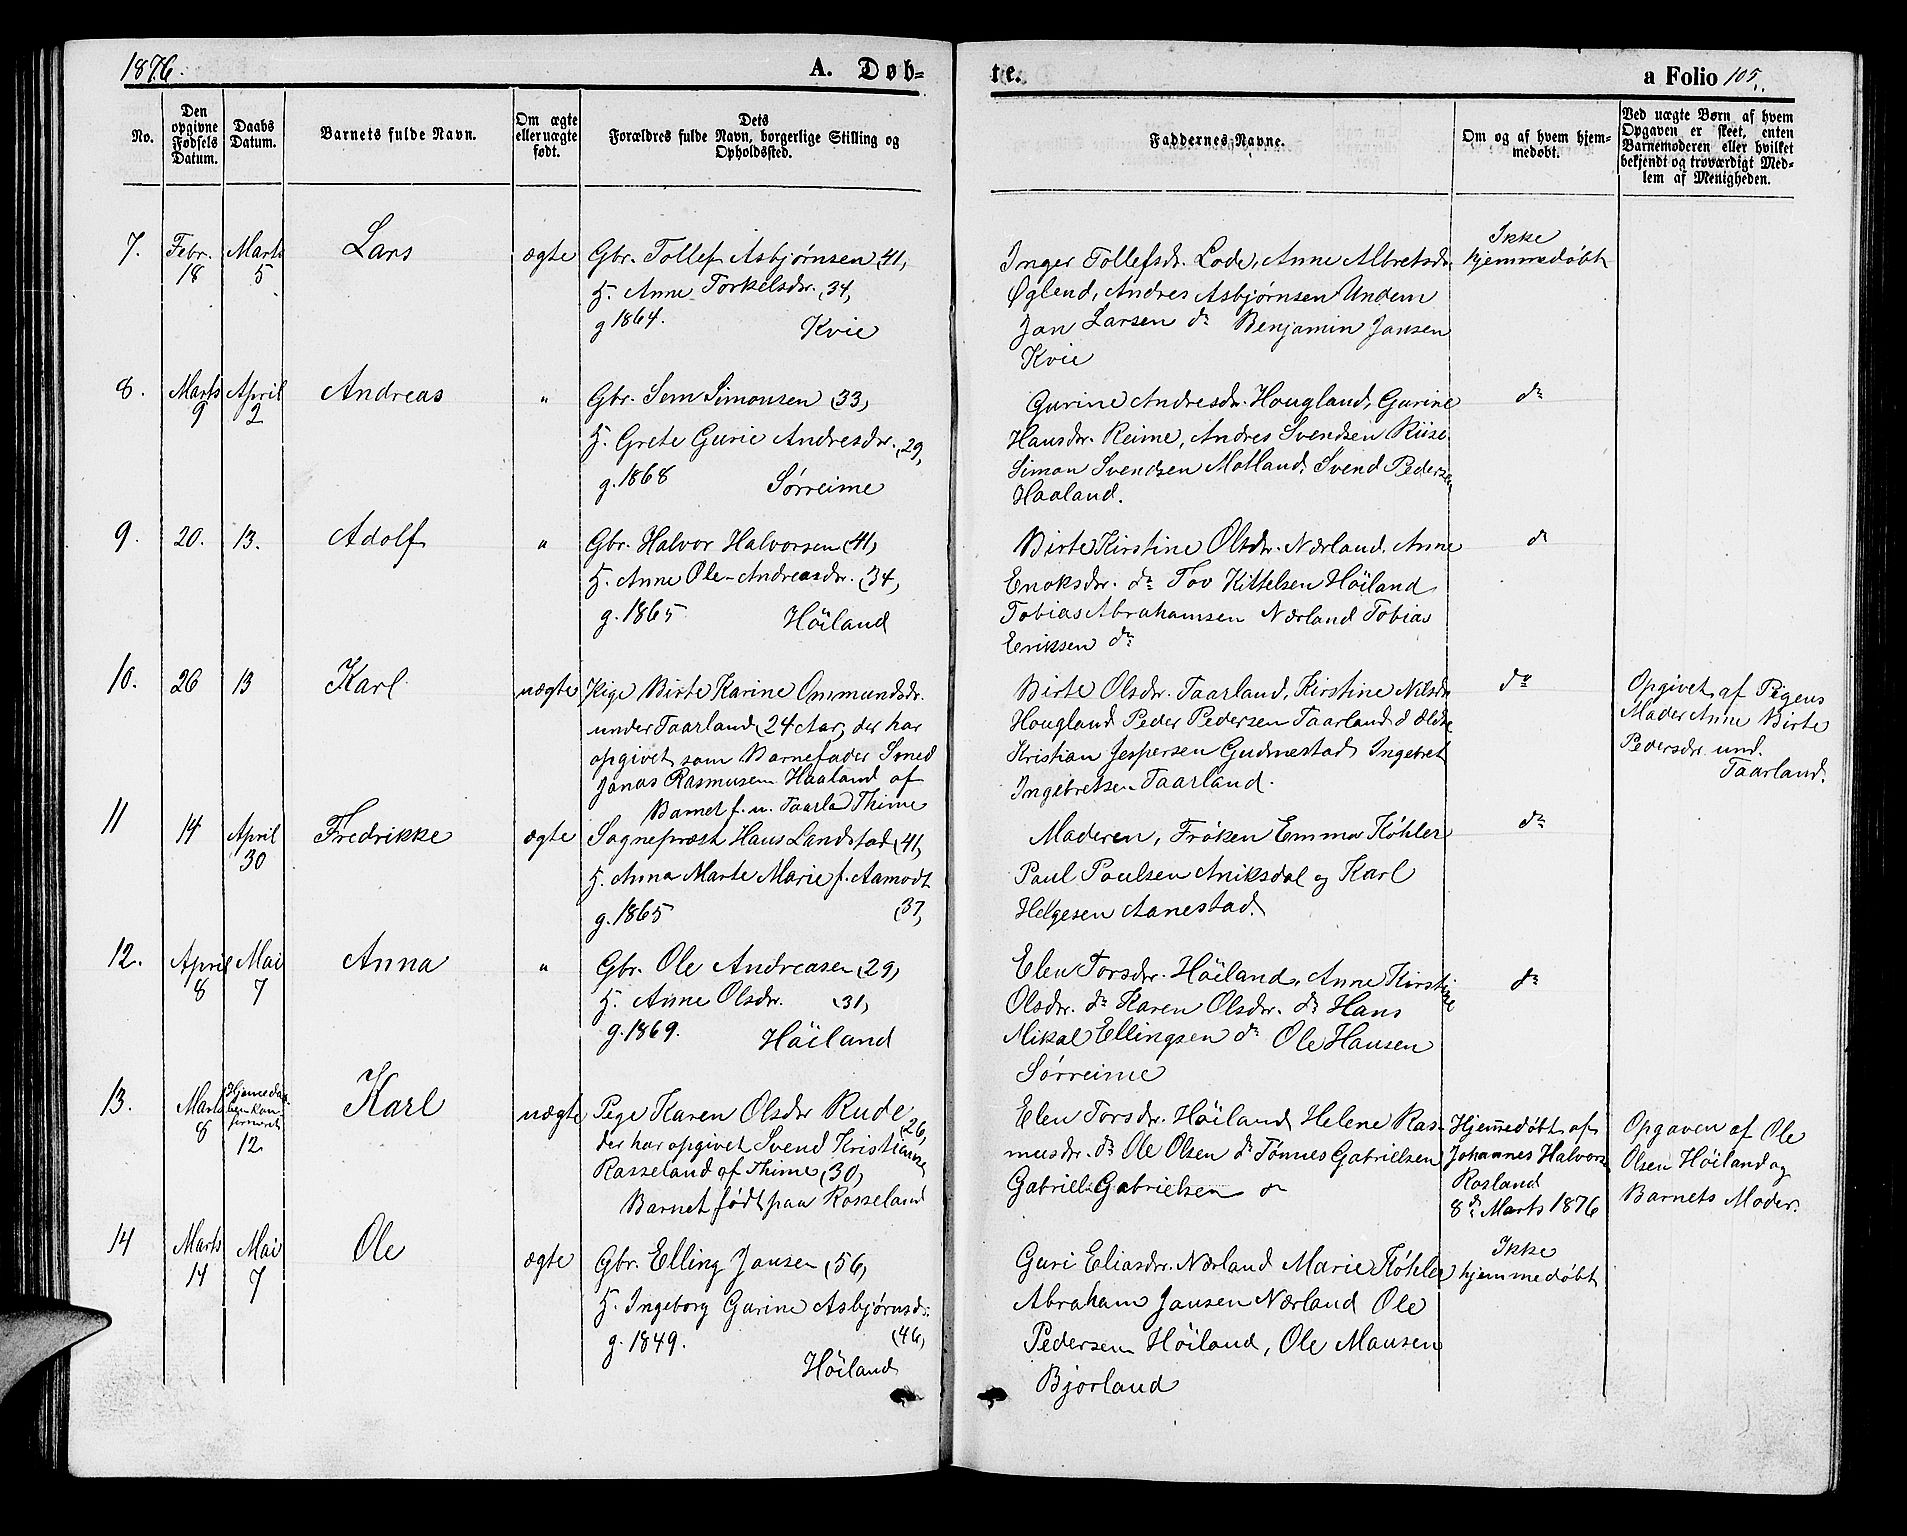 1876.
A. Døb-
te.
a Folio 105.
No.
Den opgivne Fødsels Datum.
Daabs Datum.
Barnets fulde Navn.
Om ægte eller uægte født.
Dets Forældres fulde Navn, borgerlige Stilling og Opholdssted.
Faddernes Navne.
Om og af hvem hjem-
medøbt.
Ved uægte Børn af hvem
Opgaven er skeet, enten
Barnemoderen eller hvilket
bekjendt og troværdigt Med-
lem af Menigheden.
7. Febr. 18 Marts 5 Lars ægte
Gbr. Tollef Asbjørnsen (41,
H. Anne Torkelsdr. (34,
g 1864. Kvie
Inger Tollefsdr. Lode, Anne Albretsdr.
Øglend, Andres Asbjørnsen Undem
Jan Larsen do Benjamin Jansen
Kvie
Ikke
hjemmedøbt
8. Marts 9 April 2 Andreas "
Gbr. Sem Simonsen (33,
H. Grete Gurie Andresdr. (29,
g. 1868 Sørreime
Gurine Andresdr. Hougland, Gurine
Hansdr. Reime, Andres Svendsen Riise
Simon Svendsen Motland. Svend Pedersen
Haaland.
do
9. 20. 13. Adolf "
Gbr. Halvor Halvorsen (41,
H. Anne Ole-Andreasdr. (34,
g. 1865 Höiland
Birte Kirstine Olsdr. Nærland. Anne
Enoksdr. do Tov Kittelsen Höiland
Tobias Abrahamsen Nærland Tobias
Eriksen do
do
10. 26 13 Karl uægte
Pige Birte Karine Ommundsdr.
under Taarland (24 Aar, der har
opgivet som Barnefader Smed
Jonas Rasmusen Haaland af
Barnet f. u. Taarland Thime
Birte Olsdr. Taarland, Kirstine Nilsdr
Hougland Peder Pedersen Taarland d ældre
Kristian Jespersen Gudmestad Ingebret
Ingebretsen Taarland.
do
Opgivet af Pigens
Moder Anne Birte
Pedersdr. und.
Taarland.
11 14 April 30 Fredrikke ægte
Sogneprest Hans Landstad (41,
H. Anna Marte Marie f. Aamodt
g. 1865 (37,
Moderen, Frøken Emma Køhler
Paul Paulsen Aniksdal og Karl
Helgesen Aanestad.
do
12. April 8 Mai 7 Anna "
Gbr. Ole Andreasen (29)
H. Anne Olsdr. (31,
g. 1869. Höiland
Elen Torsdr. Höiland, Anne Kirstine
Olsdr. do Karen Olsdr. do Hans
Mikal Ellingsen do Ole Hansen
Sørreime
do
13. Marts 8 12 Karl uægte
Pige Karen Olsdr Rude (26,
der har opgivet Svend Kristiansen
Rasseland af Thime (30)
Barnet født paa Rosseland
Elen Torsdr. Höiland Helene Ras-
musdr. do Ole Olsen do Tønnes Gabrielsen
Gabriel Gabrielsen do
Hjemmedøbt af
Johannes Halvors.
Rosland
8de Marts 1876
Opgaven af Ole
Olsen Höiland og
Barnets Moder.
14 Marts 14 Mai 7 Ole ægte
Gbr. Elling Jansen (56,
H. Ingeborg Gurine Asbjørnsdr.
g. 1849. (46,
Höiland
Guri Eliasdr. Nærland Marie Køhler
Abraham Jansen Nærland Ole
Pedersen Höiland, Ole Mausen
Bjorland
Ikke
hjemmedøbt